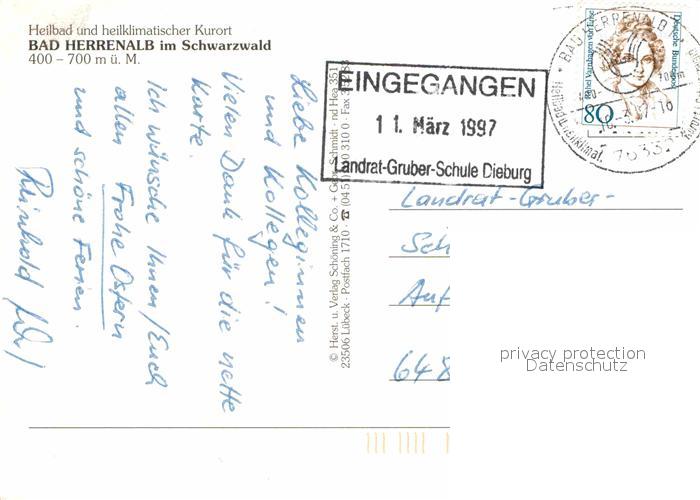 Heilbad und heilklimatischer Kurort
BAD HERRENALB im Schwarzwald
400 – 700 m ü. M.
Liebe Kolleginnen
und Kollegen!
Vielen Dank für die nette
Karte.
Ich wünsche Ihnen/Euch
allen Frohe Ostern
und schöne Ferien.
Reinhold
© Herst. u. Verlag Schöning & Co. + Schmidt
23506 Lübeck · Postfach 1710 · ☎
EINGEGANGEN
1 1. März 1997
Landrat-Gruber-Schule Dieburg
Deutsche Bundespost
Rahel Varnhagen von Ense
80
BAD HERRENALB 1
76332
Landrat-Gruber-
Sch
Auf
648
privacy protection
Datenschutz